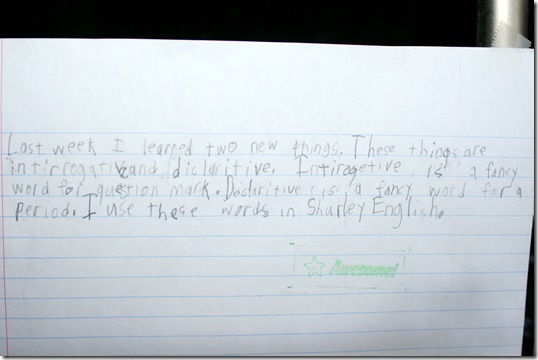 Last week I learned two new things. These things are
intirrogative and diclaritive. Intirogetive is a fancy
word for question mark. Declaritive is a fancy word for a
period. I use these words in Shurley English.
Awesome!